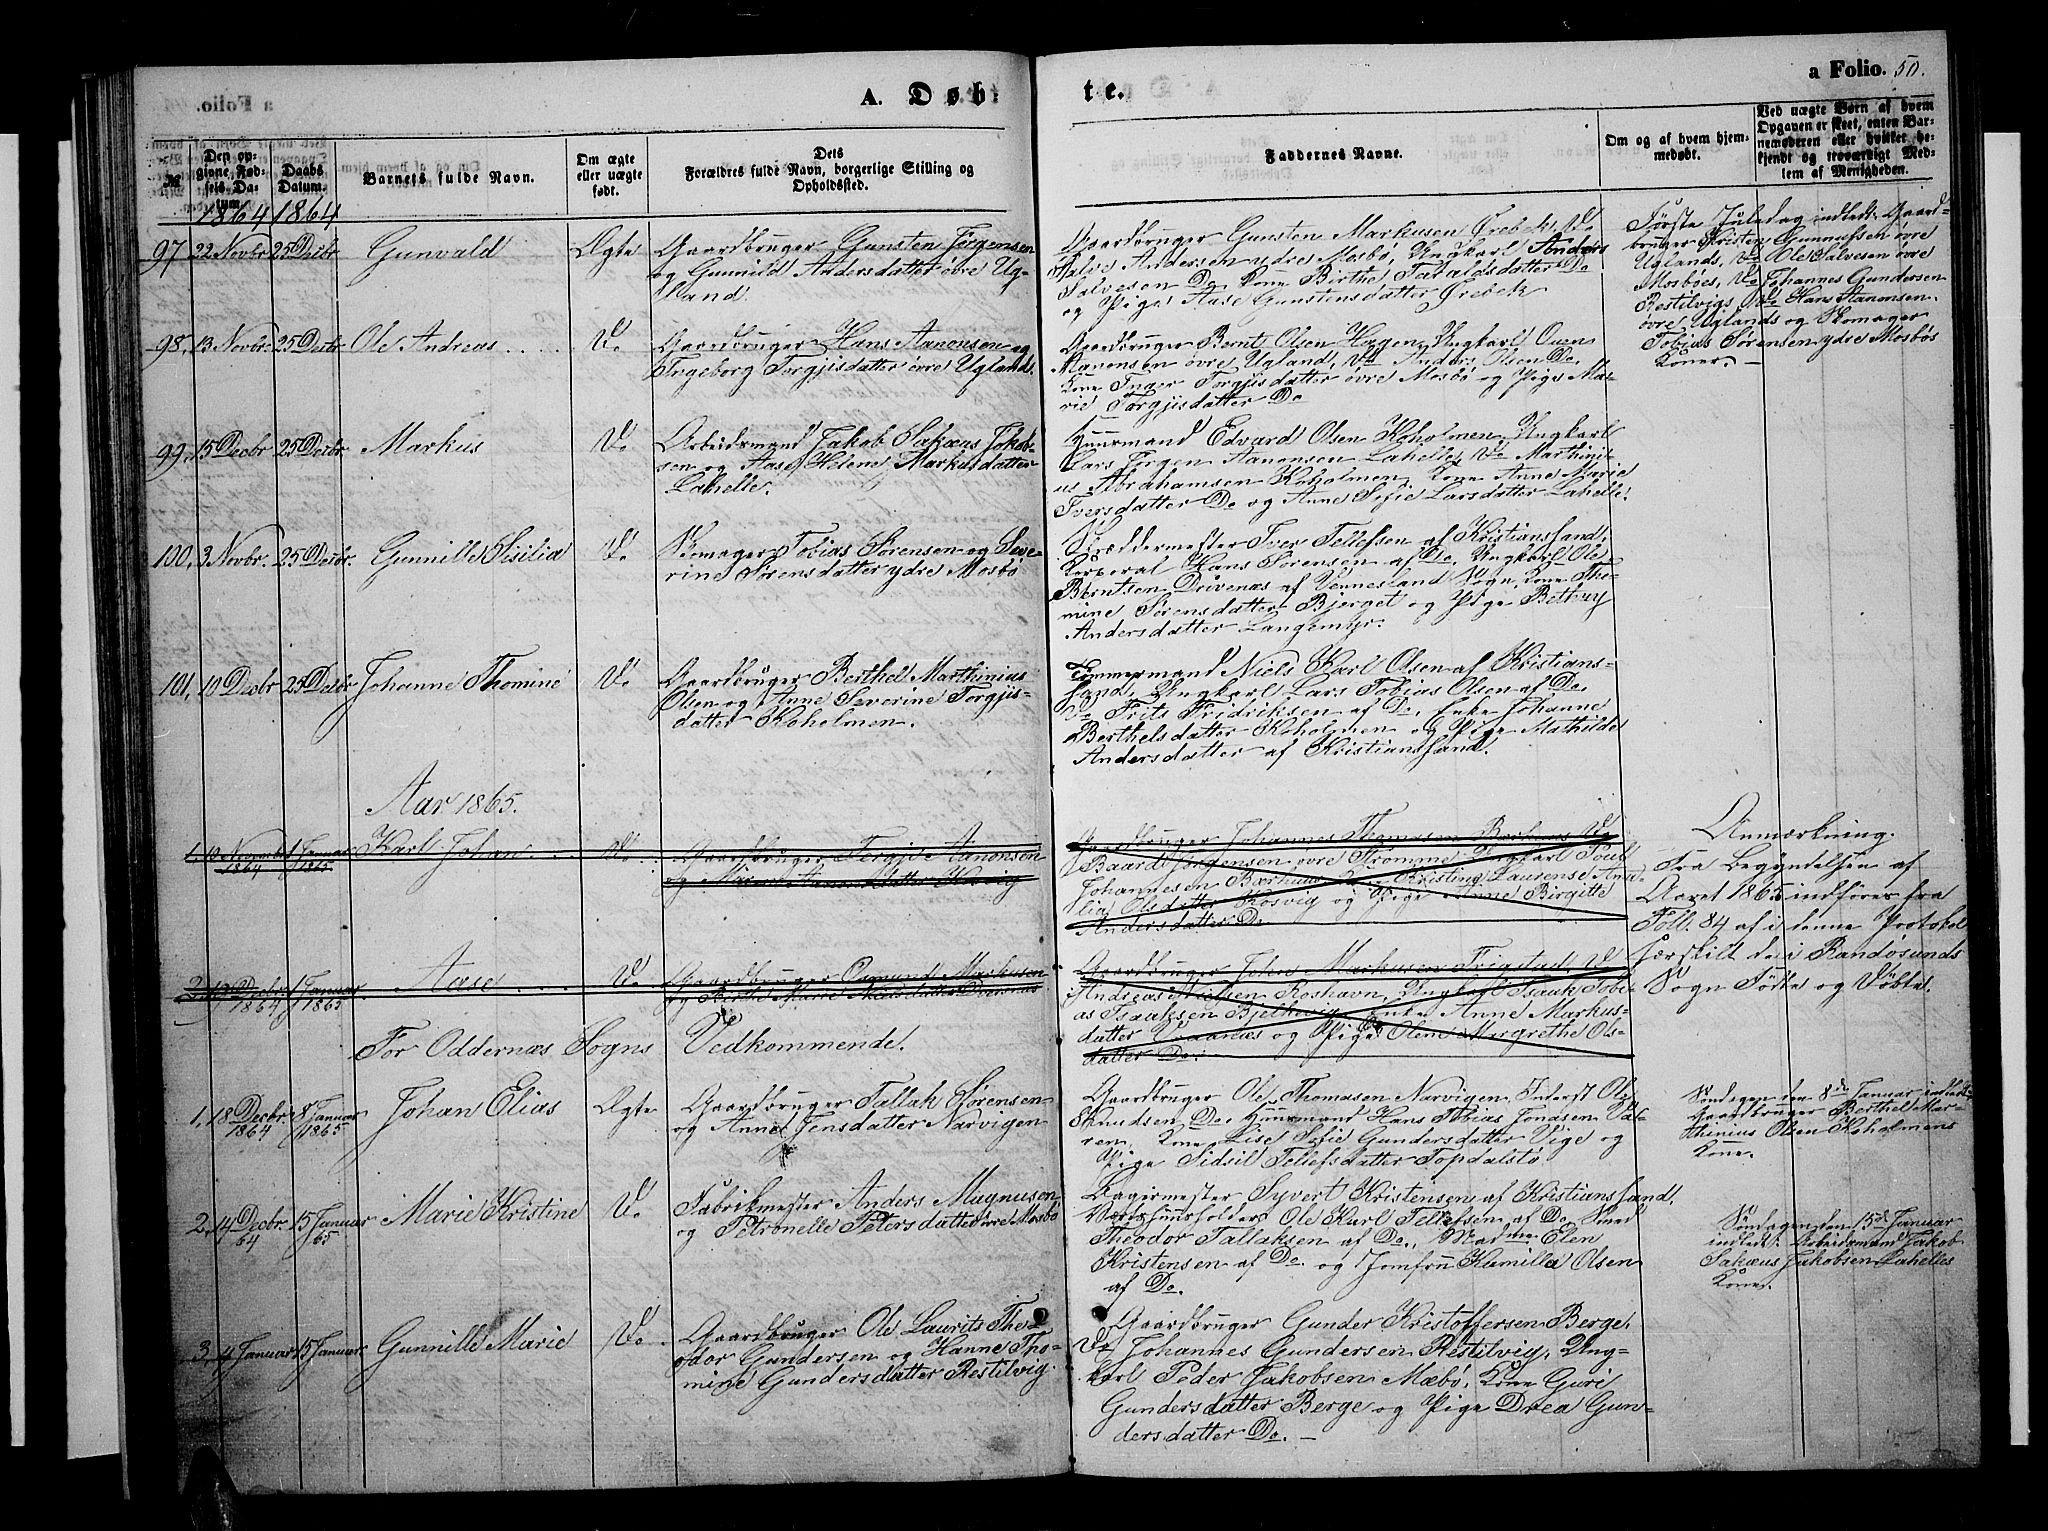 A. Døbte.
a Folio. 50.
№
Den opgivne Fødsels Datum.
Daabs Datum.
Barnets fulde Navn.
Om ægte eller uægte født.
Dets Forældres fulde Navn, borgerlige Stilling og Opholdssted.
Faddernes Navne.
Om og af hvem hjemmedøbt.
Ved uægte Børn af hvem Opgaven er skeet, enten Barnemoderen eller hvilket bekjendt og troværdigt Medlem af Menigheden.
1864 1864
97 22 Novbr 25 Decbr Gunvald Ægte
Gaardbruger Gunsten Jørgensen
og Gunnild Andersdatter øvre Ug-
land.
Gaardbruger Gunsten Markusen Örebek, Do
Salve Andersen ydre Mosbö, Ungkarl Anders
Salvesen Do Kone Birthe Taraldsdatter Do
og Pige Aase Gunstensdatter Örebek
Første Juledag indledt: Gaard-
bruger Kristen Gunnufsen övre
Uglands, Do Ole Salvesen övre
Mosbøes, Do Johannes Gundersen
Restilvigs, Do Hans Aanonsen
övre Uglands og Skomager
Tobias Sørensen ydre Mosbös
Koner. —
98. 13 Novbr. 25 Decbr. Ole Andreas Do
Gaardbruger Hans Aanonsen og
Ingeborg Torgjisdatter övre Ugland.
Gaardbruger Bernt Olsen Hagen, Ungkarl Ouen
Aanonsen övre Ugland, Do Anders Olsen Do
Kone Inger Torgjisdatter övre Mosbö og Pige Ma-
rie Torgjisdatter Do
99. 15 Decbr 25 Decbr. Markus Do
Arbeidsmand Jakob Sakæus Jakob-
sen og Aase Helene Markusdatter
Lahelle.
Huusmand Edvard Olsen Koholmen, Ungkarl
Lars Jörgen Aanonsen Lahelle, Do Marthini-
us Abrahamsen Koholmen, Kone Anne Marie
Iversdatter Do og Anne Sofie Larsdatter Lahelle.
100. 3 Novbr. 25 Decbr. Gunnille Sisilia Do
Skomager Tobias Sørensen og Seve-
rine Sørensdatter ydre Mosbö
Skræddermester Iver Tellefsen af Kristianssand,
Korporal Hans Sørensen af Do, Ungkarl Ole
Berntsen Drivenæs af Vennesland Sogn, Kone Tho-
mine Sørensdatter Bjerget og Pige Bethzy
Andersdatter Langemyr.
101, 10 Decbr 25 Decbr Johanne Thomine Do
Gaardbruger Berthel Marthinius
Olsen og Anne Severine Torgjis-
datter Koholmen.
Tømmermand Niels Karl Olsen af Kristians-
sand, Ungkarl Lars Tobias Olsen af Do,
Do Frits Fridriksen af Do, Enke Johanne
Berthelsdatter Koholmen og Pige Mathilde
Andersdatter af Kristianssand.
Aar 1865.
1. 10 Novembr 1864 1 Januar 1865 Karl Johan Do
Gaardbruger Tergje Aanonsen
og Maren Aanonsdatter Kosvig
Gaardbruger Johannes Thomasen Bærhuus, Do
Baard Jørgensen øvre Strømme, Ungkarl
Johannesen Bærhuus, Kone Kristine Laurense Ama-
lia Olsdatter Kosvig og Pige Anne Birgitte
Andersdatter Do
Anmærkning.
Fra Begyndelsen af
Aaret 1865 indføres fra
Foll. 84 af i denne Protokol
særskilt de i Randøsunds
Sogn Fødte og Døbte.
2. 19 Decbr 1864 1 Januar 1865 Aase Do
Gaardbruger Osmund Markusen
og Birthe Marie Nielsdatter
Gaardbruger John Markusen Frigstad, Do
Andreas Nielsen Roshavn, Ungkarl Isaak Tobi-
as Isaaksen Bjelkevig, Enke Anne Markus-
datter Do og Pige Olene Margrethe Ols-
datter Do.
For Oddernæs Sogns Vedkommende.
1, 18 Decbr 1864 8 Januar 1865 Johan Elias Ægte
Gaardbruger Tallak Sørensen
og Anne Jensdatter Narvigen
Gaardbruger Ole Thomasen Narvigen, Inderst Ole
Knudsen Do, Huusmand Hans Tobias Jonasen Vat-
ren, Kone Lise Sofie Gundersdatter Vige og
Pige Sidsil Tellefsdatter Topdalstö
Söndagen den 8de Januar indledt
Gaardbruger Berthel Mar-
thinius Olsen Koholmens
Kone.
2, 14 Decbr 64 15 Januar 65 Marie Kristine Do
Fabrikmester Anders Magnusen
og Petronelle Petersdatter övre Mosbö
Bagermester Syvert Kristensen af Kristianssand,
Værtshuusholder Ole Karl Tellefsen af Do, Smed
Theodor Tallaksen af Do, Madme Elen
Kristensen af Do og Jomfru Kamilla Olsen
af Do.
Söndagen den 15de Januar
indledt: Arbeidsmand Jakob
Sakæus Jakobsen Lahelles
Kone.
3, 4 Januar 15 Januar Gunnille Marie Do
Gaardbruger Ole Laurits The-
odor Gundersen og Hanne Tho-
mine Gundersdatter Restilvig.
Gaardbruger Gunder Kristoffersen Berge,
Do Johannes Gundersen Restilvig, Ung-
karl Peder Jakobsen Mæbö, Kone Guri
Gundersdatter Berge og Pige Drea Gun-
dersdatter Do. —